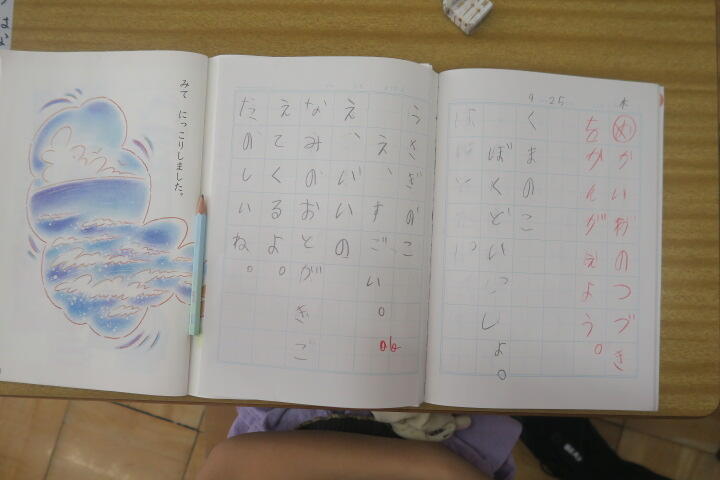 9 25 木
め かいわのつづき
をかんがえよう。
くまのこ
ぼくどいっしょ。
うさぎのこ
え、すごい。
なみのおとがきご
えてくるよ。
だのしいね。
みて にっこりしました。